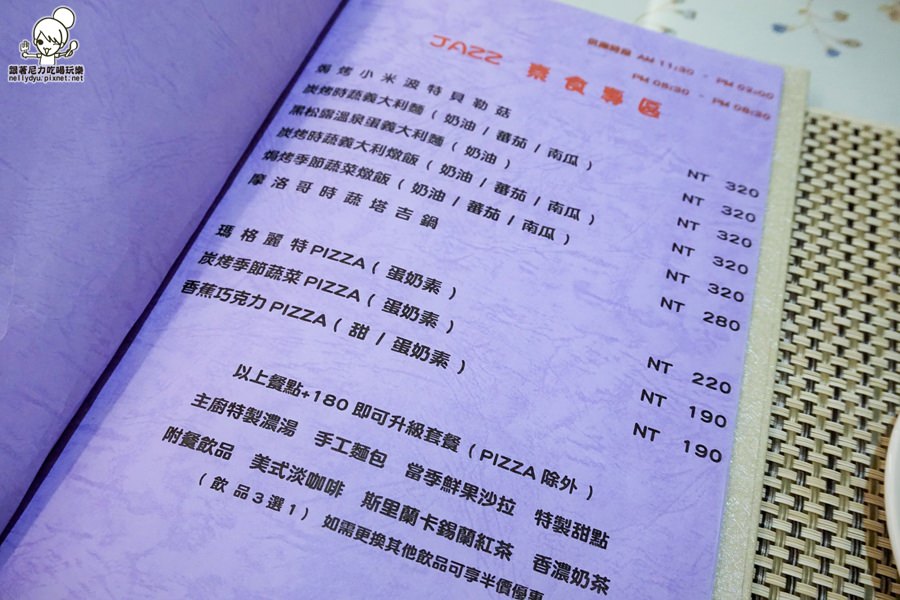 跟著尼力吃喝玩樂
nellydyu.pixnet.net
供應時段 AM 11:30 - PM 02:00
PM 05:30 - PM 08:30
JAZZ 素食專區
焗烤小米波特貝勒菇 NT 320
炭烤時蔬義大利麵(奶油/蕃茄/南瓜) NT 320
黑松露溫泉蛋義大利麵(奶油) NT 320
炭烤時蔬義大利燉飯(奶油/蕃茄/南瓜) NT 320
焗烤季節蔬菜燉飯(奶油/蕃茄/南瓜) NT 320
摩洛哥時蔬塔吉鍋 NT 280
瑪格麗特PIZZA(蛋奶素) NT 220
炭烤季節蔬菜PIZZA(蛋奶素) NT 190
香蕉巧克力PIZZA(甜/蛋奶素) NT 190
以上餐點+180即可升級套餐(PIZZA除外)
主廚特製濃湯 手工麵包 當季鮮果沙拉 特製甜點
附餐飲品 美式淡咖啡 斯里蘭卡錫蘭紅茶 香濃奶茶
(飲品3選1) 如需更換其他飲品可享半價優惠